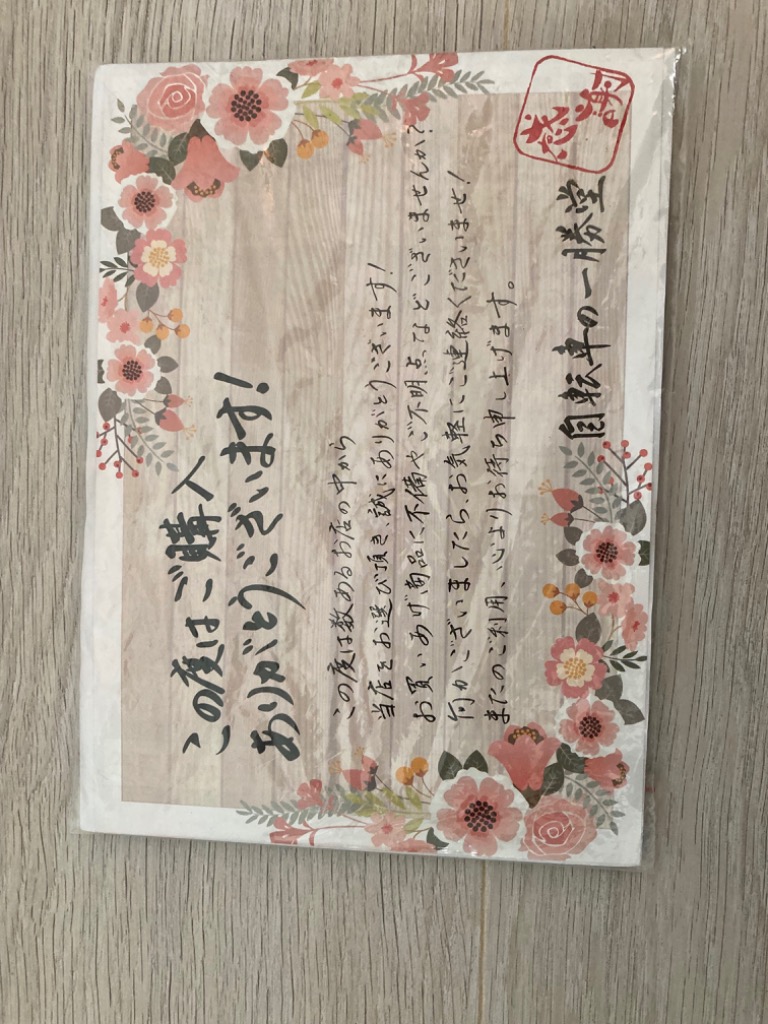 この度はご購入
ありがとうございます!
この度は数あるお店の中から
当店をお選び頂き、誠にありがとうございます!
お買いあげ商品に不備やご不明点などございませんか?
何かございましたら、お気軽にご連絡くださいませ!
またのご利用、心よりお待ち申し上げます。
自転車の一勝堂
感謝